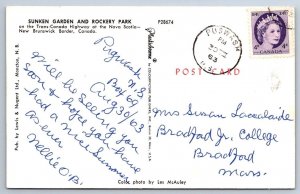 SUNKEN GARDEN AND ROCKERY PARK
on the Trans-Canada Highway at the Nova Scotia–
New Brunswick Border, Canada.
P28674
Pugwash N.S.
Box 69
Aug 30/63
Will be seeing you
soon & hope you have
had a nice summer
as ever
Nellie O'B.
Pub. by Lewis & Nugent Ltd., Moncton, N.B.
Color photo by Les McAuley
Plastichrome
POST CARD
PUGWASH
63
N.S.
4¢
4¢
Miss Susan Lacadaide
Bradford Jr. College
Bradford
Mass.